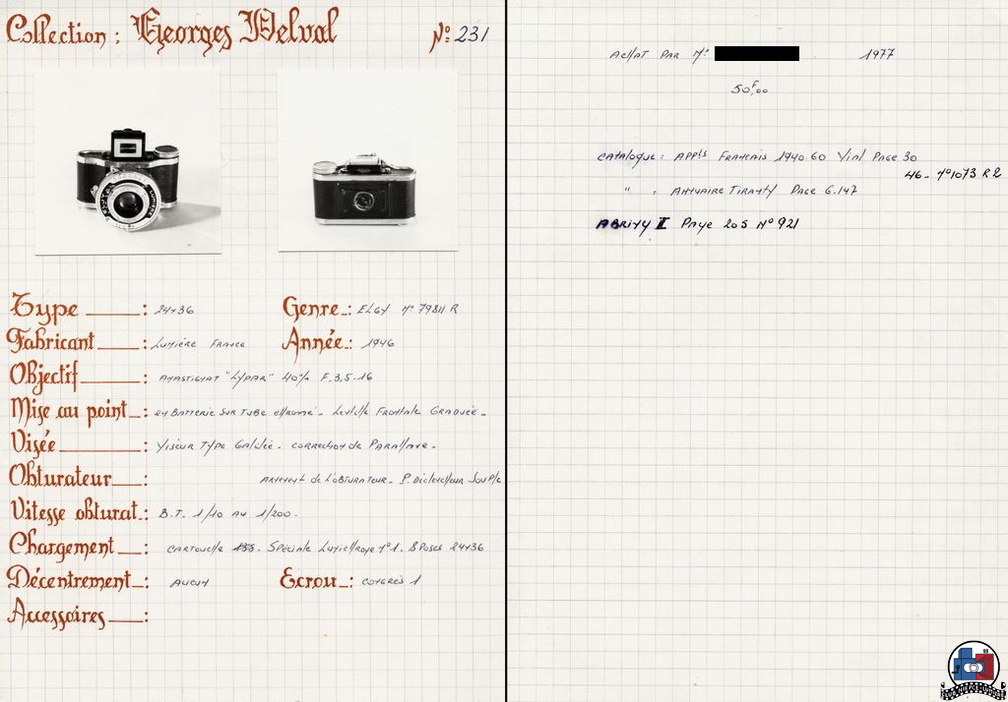 Collection : Georges Delval
N° 231
Type : 24x36
Genre : ELGY N° 79811 R
Fabricant : LUMIÈRE FRANCE
Année : 1946
Objectif : ANASTIGMAT "LYPAR" 40% F.3,5.16
Mise au point : EN BATTERIE SUR TUBE CHROMÉ - LENTILLE FRONTALE GRADUÉE -
Visée : VISEUR TYPE GALILÉE - CORRECTION DE PARALLAXE -
Obturateur : ARMEMENT DE L'OBTURATEUR - P. DÉCLENCHEUR SOUPLE
Vitesse obturat. : B.T. 1/10 AU 1/200 -
Chargement : CARTOUCHE SPÉCIALE LUMIÈRE N°1. 8 POSES 24x36
Décentrement : AUCUN
Ecrou : CONGRÈS 1
Accessoires :
ACHAT PAR Mr
1977
50F,00
CATALOGUE : APPts FRANÇAIS 1940.60 Vial PAGE 30
46 - N°1073 R2
" : ANNUAIRE TIRANTY PAGE 6.147
ABRING I PAGE 205 N° 921